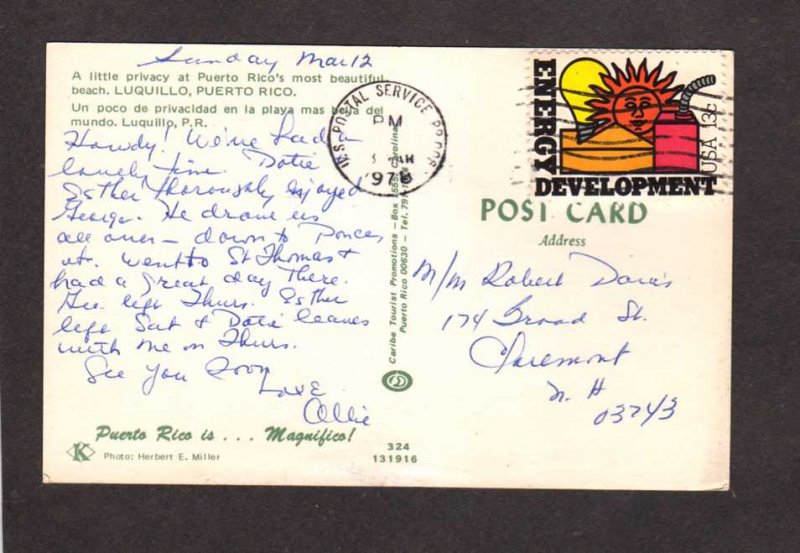 Sunday Mar 12
A little privacy at Puerto Rico's most beautiful
beach. LUQUILLO, PUERTO RICO.
Un poco de privacidad en la playa mas bella del
mundo. Luquillo, P.R.
Howdy! We've had a
lovely time. Dotie
Esther thoroughly enjoyed
George. He drove us
all over - down to Ponce,
etc. went to St Thomas &
had a great day there.
Geo left Thurs. Esther
left Sat & Dotie leaves
with me on Thurs.
See you soon
Love
Ollie
Puerto Rico is . . . Magnifico!
K
Photo: Herbert E. Miller
324
131916
Caribe Tourist Promotions - Box Carolina,
Puerto Rico 00630 - Tel. 791
U.S. POSTAL SERVICE
PM
1978
ENERGY
DEVELOPMENT
USA 13c
POST CARD
Address
M/M Robert Davis
174 Broad St.
Claremont
N. H
03743